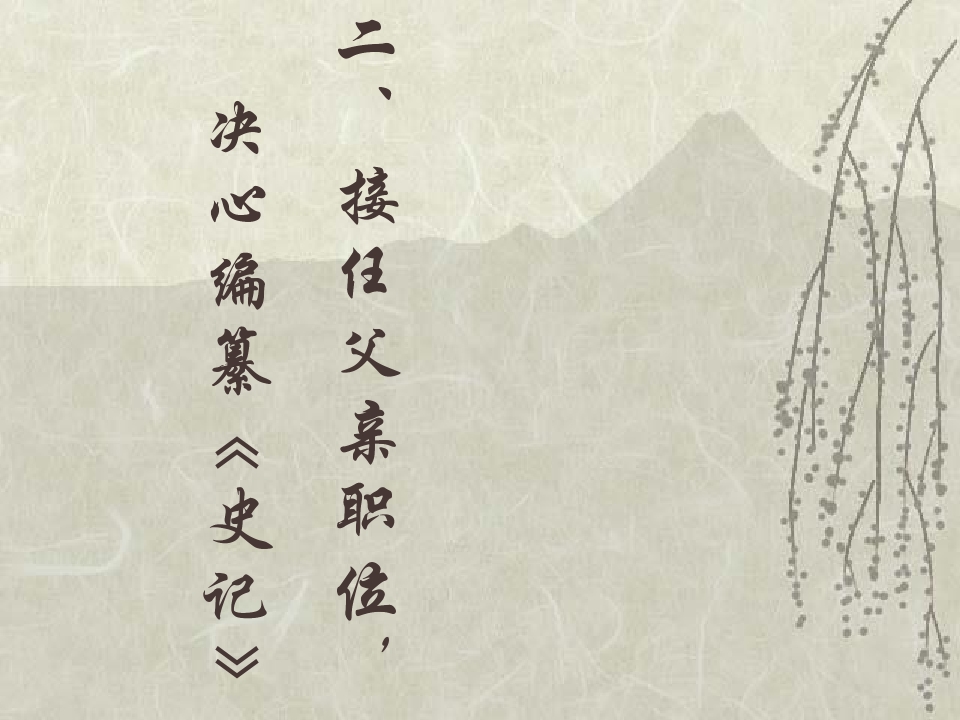 二、接任父亲职位，
决心编纂《史记》